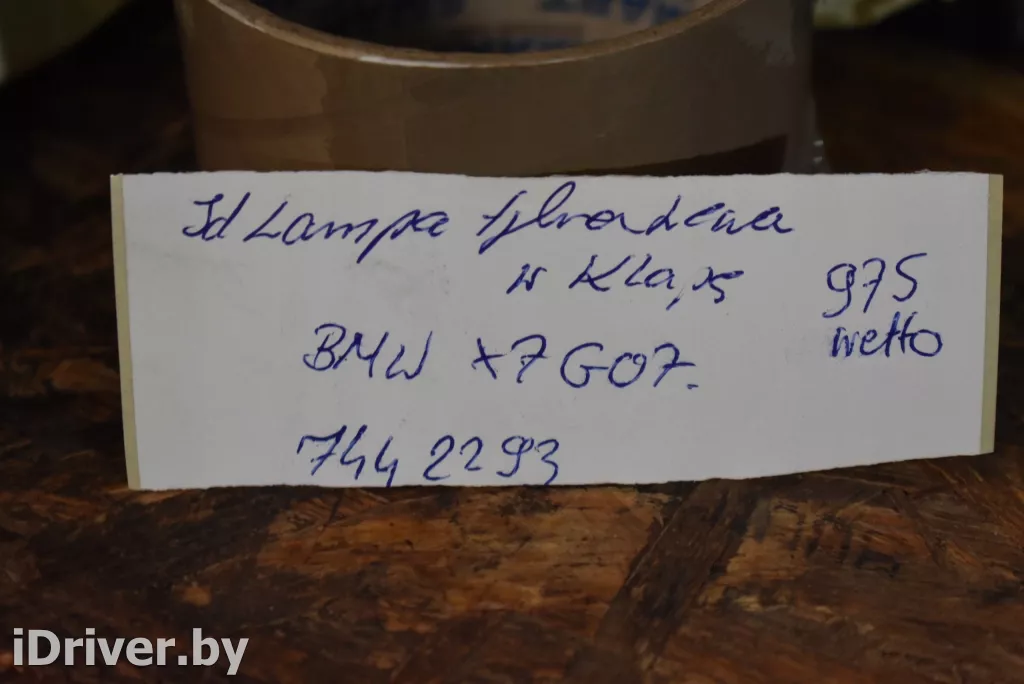 Id Lampa tylna Lewa
w Klapę
975
netto
BMW X7 G07.
7442293
iDriver.by